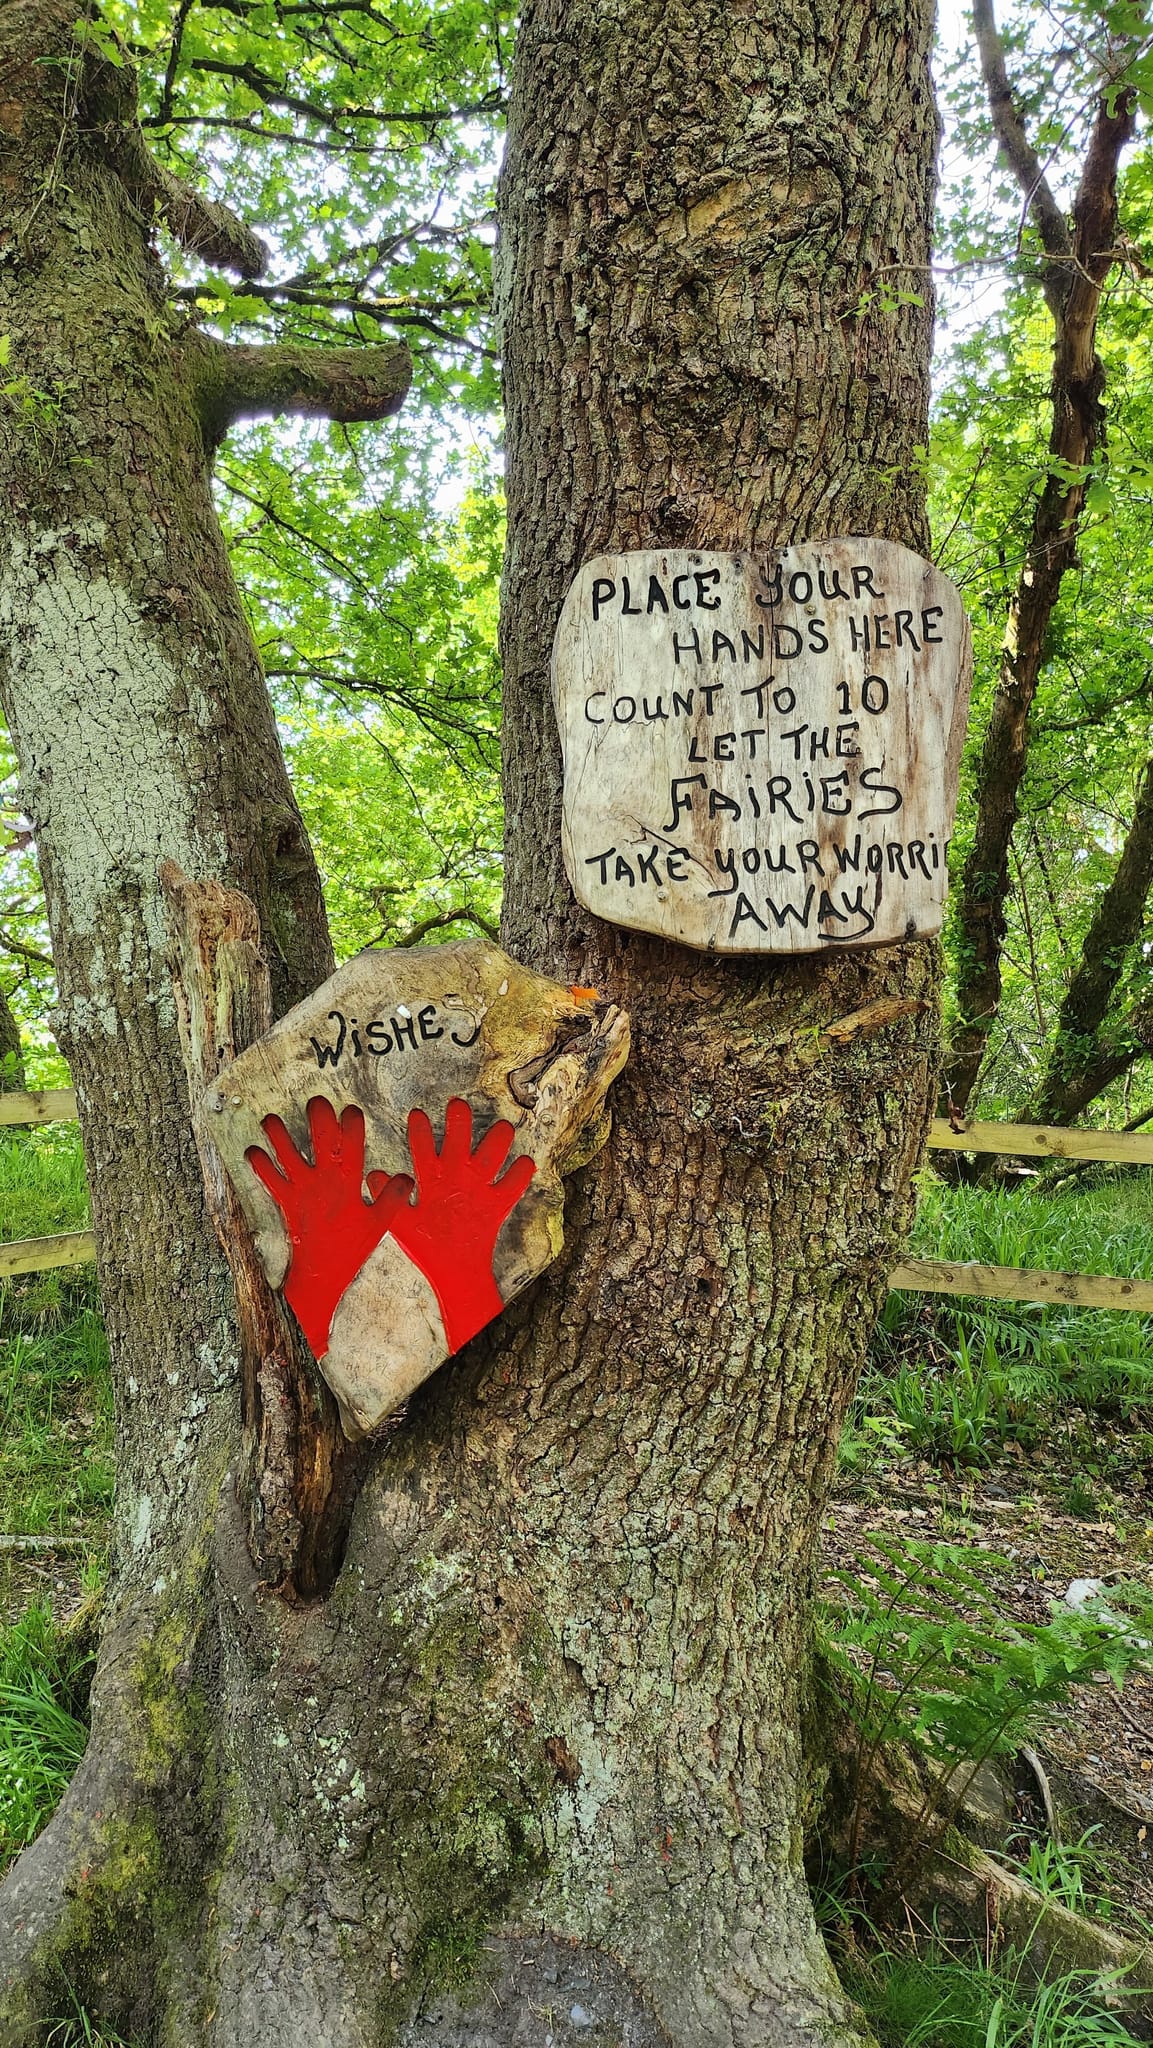 PLACE YOUR
HANDS HERE
COUNT TO 10
LET THE
FAIRIES
TAKE YOUR WORRI
AWAY
WISHES